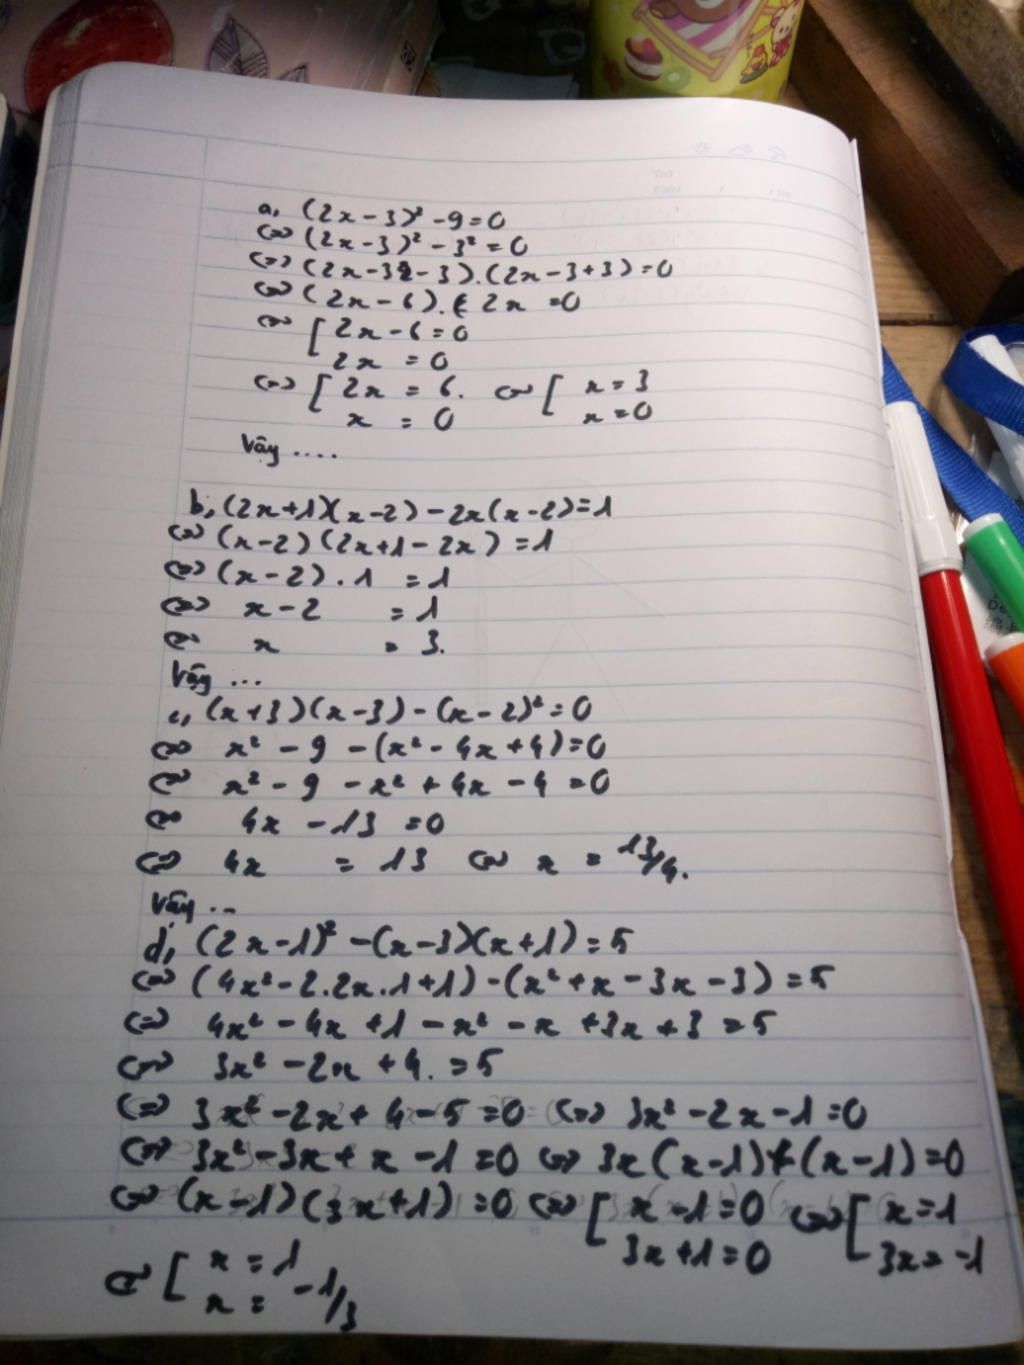 a, (2x-3)² - 9 = 0
⇔ (2x-3)² - 3² = 0
⇔ (2x-3-3).(2x-3+3) = 0
⇔ (2x-6). 2x = 0
⇔ [ 2x-6 = 0
2x = 0
⇔ [ 2x = 6. ⇔ [ x = 3
x = 0 x = 0
Vậy ....
b, (2x+1)(x-2) - 2x(x-2) = 1
⇔ (x-2)(2x+1-2x) = 1
⇔ (x-2).1 = 1
⇔ x-2 = 1
⇔ x = 3.
Vậy ...
c, (x+3)(x-3) - (x-2)² = 0
⇔ x² - 9 - (x² - 4x + 4) = 0
⇔ x² - 9 - x² + 4x - 4 = 0
⇔ 4x - 13 = 0
⇔ 4x = 13 ⇔ x = 13/4.
Vậy ..
d, (2x-1)² - (x-3)(x+1) = 5
⇔ (4x² - 2.2x.1+1) - (x² + x - 3x - 3) = 5
⇔ 4x² - 4x + 1 - x² - x + 3x + 3 = 5
⇔ 3x² - 2x + 4. = 5
⇔ 3x² - 2x + 4 - 5 = 0 ⇔ 3x² - 2x - 1 = 0
⇔ 3x² - 3x + x - 1 = 0 ⇔ 3x(x-1) + (x-1) = 0
⇔ (x-1)(3x+1) = 0 ⇔ [ x-1 = 0 ⇔ [ x = 1
3x+1 = 0 3x = -1
⇔ [ x = 1
x = -1/3